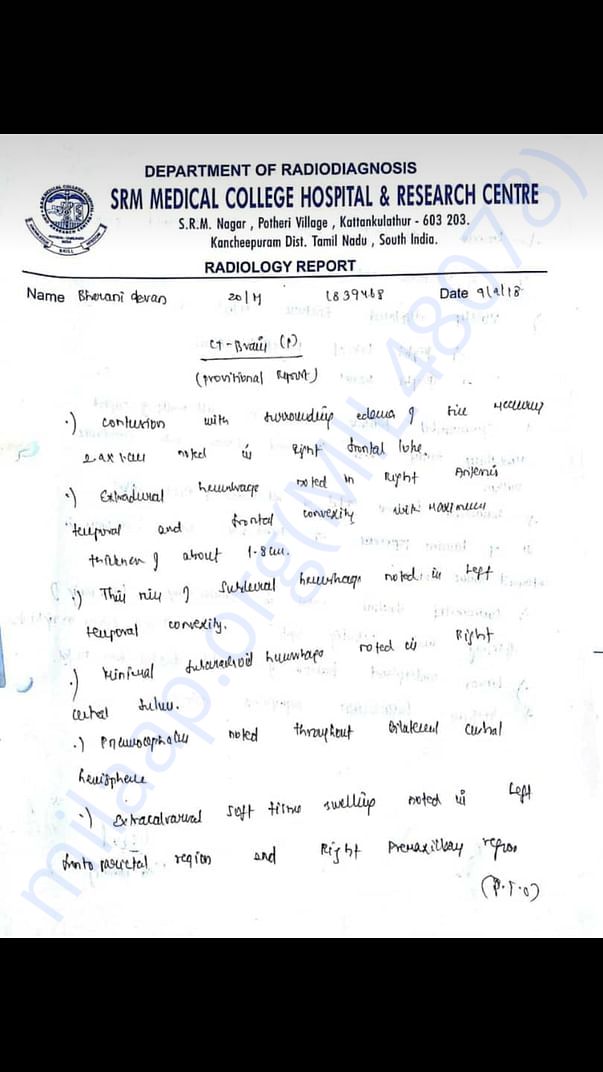 DEPARTMENT OF RADIODIAGNOSIS
SRM MEDICAL COLLEGE HOSPITAL & RESEARCH CENTRE
S.R.M. Nagar , Potheri Village , Kattankulathur - 603 203.
Kancheepuram Dist. Tamil Nadu , South India.
RADIOLOGY REPORT
Name Bharani devan 20/M Date
CT-Brain (P)
(Provisional Report)
.) contusion with surrounding edema of size measuring
noted in Right frontal lobe.
.) Extradural hemorrhage noted in Right Anterior
temporal and frontal convexity with maximum
thickness of about 1.8cm.
.) Thin rim of subdural hemorrhage noted in Left
temporal convexity.
.) Minimal subarachnoid hemorrhage noted in Right
sulcus.
.) Pneumocephalus noted throughout bilateral cerebral
hemisphere
.) Extracalvarial soft tissue swelling noted in Left
fronto parietal region and Right Premaxillary region
(P.T.O)
milaap.org(MIL48078)